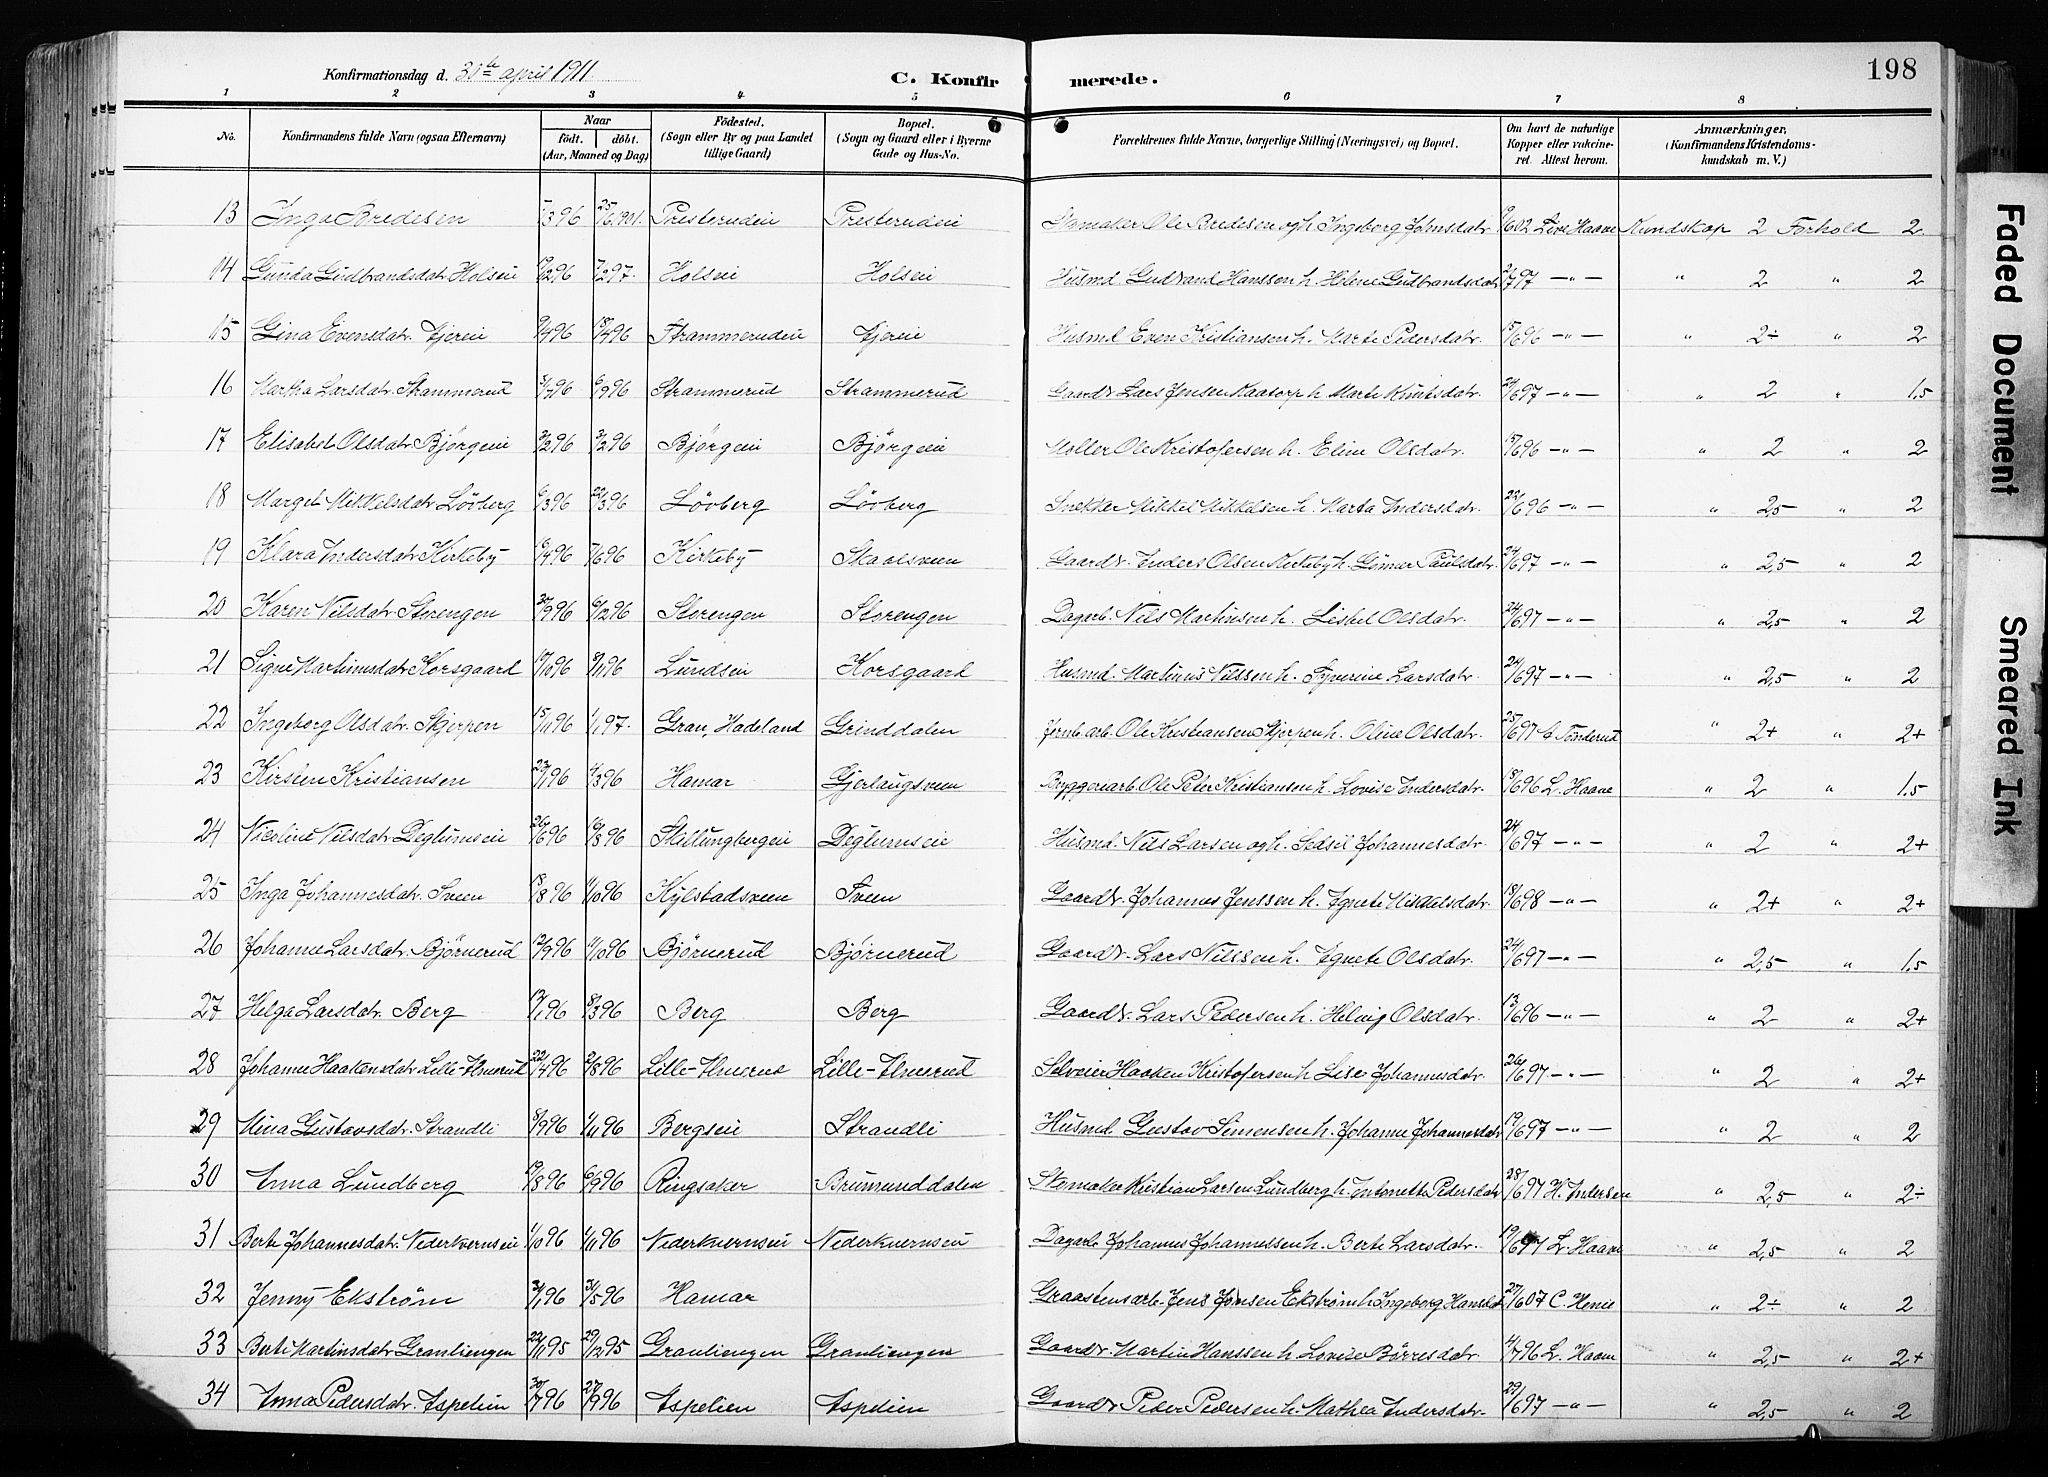 Konfirmationsdag d. 30te april 1911. C. Konfirmerede. 198
1 2 3 4 5 6 7 8
No. Konfirmandens fulde Navn (ogsaa Efternavn) Naar födt. döbt. (Aar, Maaned og Dag) Födested. (Sogn eller By og paa Landet tillige Gaard) Bopæl. (Sogn og Gaard eller i Byerne Gade og Hus-No. Forældrenes fulde Navne, borgerlige Stilling (Næringsvei) og Bopæl. Om havt de naturlige Kopper eller vakcineret. Attest herom. Anmærkninger, (Konfirmandens Kristendomskundskab m. V.)
13 Inga Bredesen 7/3 96 25/6 1901. Presterudei Presterudei Skomaker Ole Bredesen og h. Ingeborg Johnsdatr. 9/6 02 Live Haave Kundskap 2 Forhold 2
14 Gunda Gudbrandsdatr Holsei 19/12 96 7/2 97. Holsei Holsei Husmd. Gudbrand Hanssen h. Helene Gudbrandsdatr 2/7 97 —"— " 2 " 2
15 Gina Evensdatr. Ejerei 9/4 96 18/4 96 Strammerudei Ejerei Husmd Even Kristiansen h. Marte Pedersdatr. 15/6 96 —"— " 2÷ " 2
16 Martha Larsdatr. Strammerud 3/7 96 6/9 96 Strammerud Strammerud Gaardbr. Lars Jensen Kaatorp h. Marte Knutsdatr. 24/6 97 —"— " 2 " 1.5
17 Elisabet Olsdatr Bjørgeie 3/2 96 3/2 96 Bjørgeie Bjørgeie Møller Ole Kristofersen h. Eline Olsdatr. 13/6 96 —"— " 2 " 2
18 Marget Mikkelsdatr Lövberg 6/3 96 22/3 96 Lövberg Lövberg Snekker Mikkel Mikkelsen h. Marta Andersdatr. 22/6 96 —"— " 2,5 " 2
19 Klara Andersdatr Kirkeby 16/4 96 7/6 96 Kirkeby Skaalsveen Gaardbr. Anders Olsen Kirkeby h. Gunnar Paulsdatr. 24/6 97 —"— " 2,5 " 2
20 Karen Nilsdatr Storengen 30/9 96 6/12 96 Storengen Storengen Dagarb. Nils Martinsen h. Lisbet Olsdatr. 24/6 97 —"— " 2,5 " 2
21 Signe Martinusdatr Korsgaard 17/10 96 8/11 96 Lundsei Korsgaard Husmd. Martinus Nilssen h. Syverine Larsdatr. 24/6 97 —"— " 2,5 " 2
22 Ingeborg Olsdatr. Skjerpen 15/11 96 1/1 97. Gran, Hadeland Grinddalen Jernb.arb. Ole Kristiansen Skjerpen h. Oline Olsdatr. 25/6 97 Tønderud " 2+ " 2+
23 Kirsten Kristiansen 27/1 96 4/3 96 Hamar Gjerlaugsveen Bryggeriarb. Ole Peter Kristiansen h. Lovise Andersdatr. 18/6 96 L. Haave " 2 " 1.5
24 Nicoline Nilsdatr Deglumseie 26/6 96 16/8 96 Skillungbergei Deglumseie Husmd. Nils Larsen og h. Sidsil Johannesdatr. 24/6 97 —"— " 2 " 2+
25 Inga Johannesdatr. Sveen 18/8 96 4/10 96 Kylstadsveen Sveen Gaardbr. Johannes Jenssen h. Agnete Mikkelsdatr. 18/6 98 —"— " 2+ " 2+
26 Johanne Larsdatr. Bjørnerud 12/9 96 11/10 96 Bjørnerud Bjørnerud Gaardbr. Lars Nilssen h. Agnete Olsdatr. 24/6 97 —"— " 2,5 " 1,5
27 Helga Larsdatr. Berg 17/1 96 8/3 96 Berg Berg Gaardbr. Lars Pedersen h. Helvig Olsdatr. 13/6 96 —"— " 2 " 2+
28 Johanne Haakensdatr Lille-Almerud 22/4 96 2/8 96 Lille-Almerud Lille-Almerud Selveier Haaken Kristofersen h. Lise Johannesdatr. 26/6 97 —"— " 2 " 2+
29 Mina Gustavsdatr. Strandli 8/9 96 1/11 96 Bergseie Strandli Husmd. Gustav Simensen h. Johanne Johannesdatr 19/6 97 —"— " 2 " 2
30 Anna Lundberg 19/8 96 6/9 96 Ringsaker Brumunddalen Skomaker Kristian Larsen Lundberg h. Antonette Pedersdatr 28/6 97 H. Andersen " 2,5 " 2÷
31 Berte Johannesdatr. Nederkvernseie 4/10 96 1/11 96 Nederkvernseie Nederkvernseie Dagarb. Johannes Johannessen h. Berte Larsdatr. 19/6 97 L. Haave " 2,5 " 2
32 Jenny Ekström 3/1 96 31/5 96 Hamar Graastensarb. Jens Jonsen Ekström h. Ingeborg Hansdtr 27/6 07 C. Henie " 2÷ " 2
33 Berte Martinsdatr Granliengen 22/11 95 29/12 95 Granliengen Granliengen Gaardbr. Martin Hanssen h. Lovise Børresdatr. 4/7 96 L. Haave " 2,5 " 2+
34 Anna Pedersdatr. Aspelien 30/7 96 27/9 96 Aspelien Aspelien Gaardbr Peder Pedersen h. Mathea Andersdatr. 29/6 97 —"— " 2,5 " 2
Faded Document
Smeared Ink